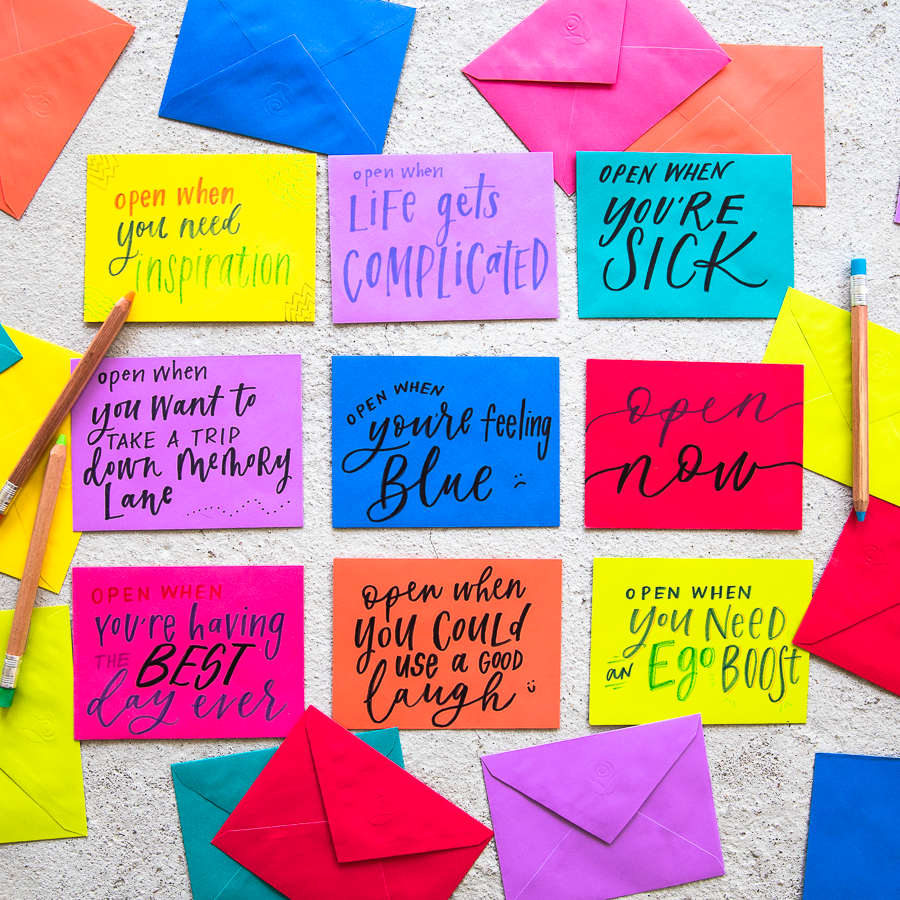 open when
you need
inspiration
open when
LiFe gets
COMPLiCatED
OPEN WHEN
YOU'RE
SICK
open when
you want to
TAKE A TRIP
down MeMORY
Lane
OPEN WHEN
you're feeling
Blue :(
open
now
OPEN WHEN
you're having
THE BEST
day ever
open when
you COULd
use a GOOD
laugh :)
OPEN WHEN
you NEED
an Ego BOOSt